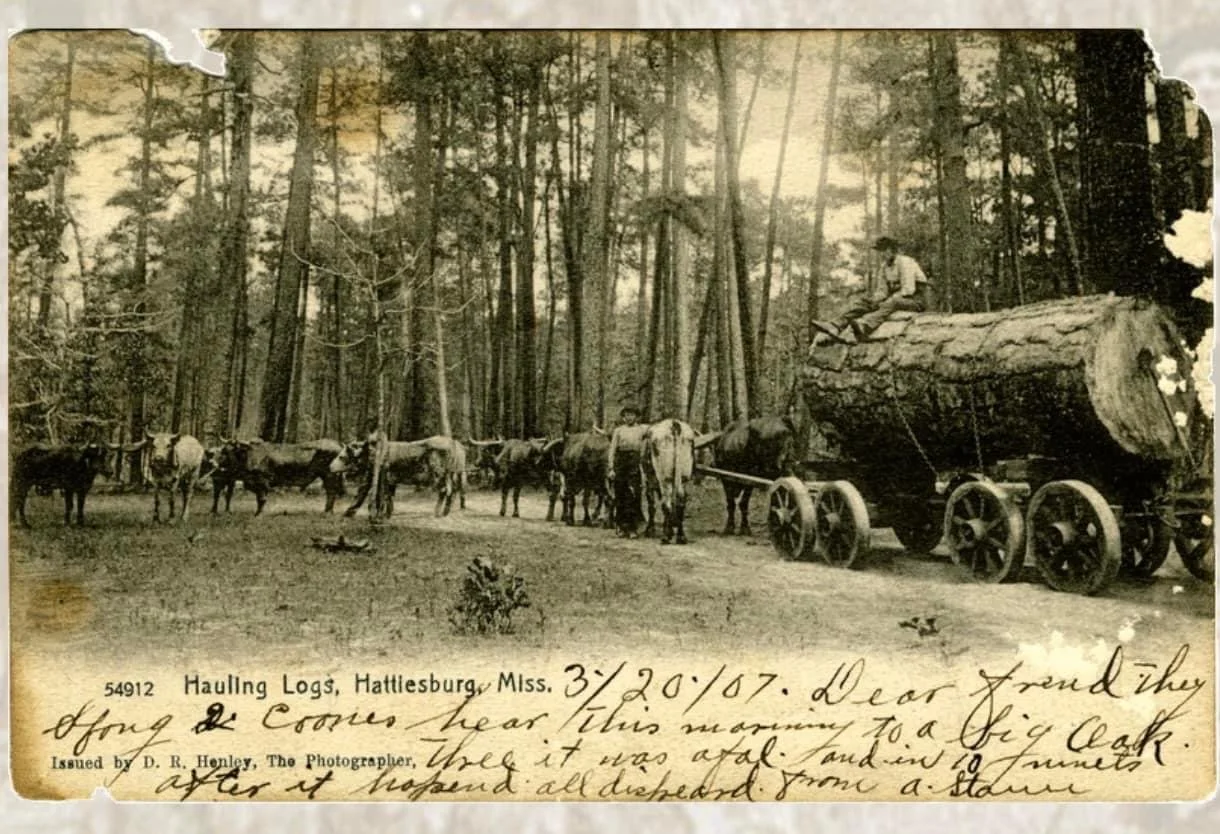 54912 Hauling Logs, Hattiesburg, Miss. 3/20/07. Dear frend they
2 Coones hear this morning to a big Oak.
Issued by D. R. Henley, The Photographer, three it was afal. and in 10
after it hapend all dispeard. From a.